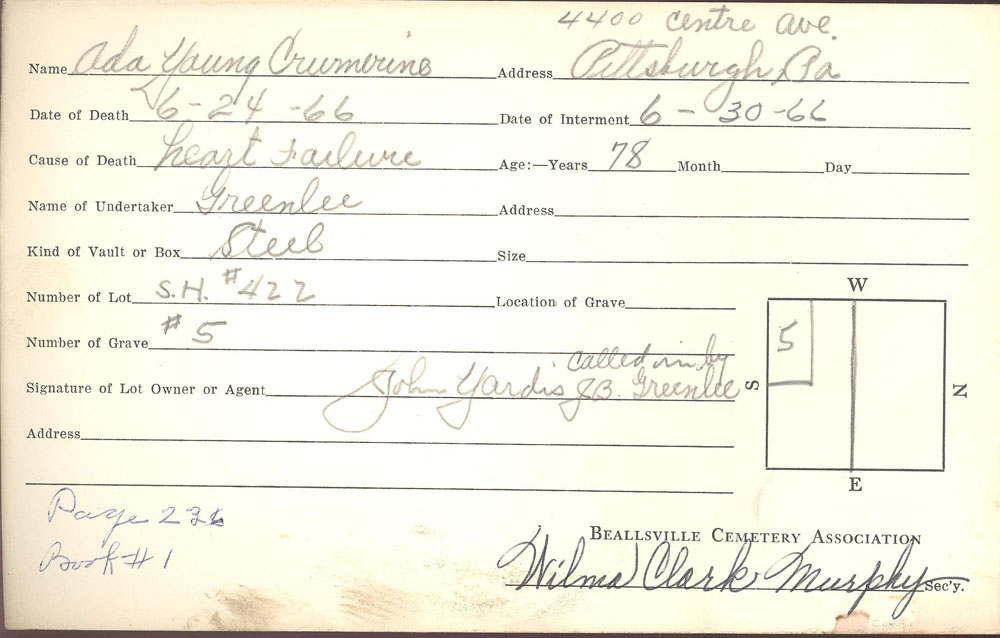 4400 Centre Ave.
Name Ada Young Crumrine Address Pittsburgh, Pa
Date of Death 6-24-66 Date of Interment 6-30-66
Cause of Death heart Failure Age:—Years 78 Month Day
Name of Undertaker Greenlee Address
Kind of Vault or Box Steel Size
Number of Lot S.H. #422 Location of Grave
Number of Grave #5
called in by
Signature of Lot Owner or Agent John Yardis J.B. Greenlee
Address
W
5
S
N
E
Page 236
Book #1
Beallsville Cemetery Association
Wilma Clark Murphy Sec'y.